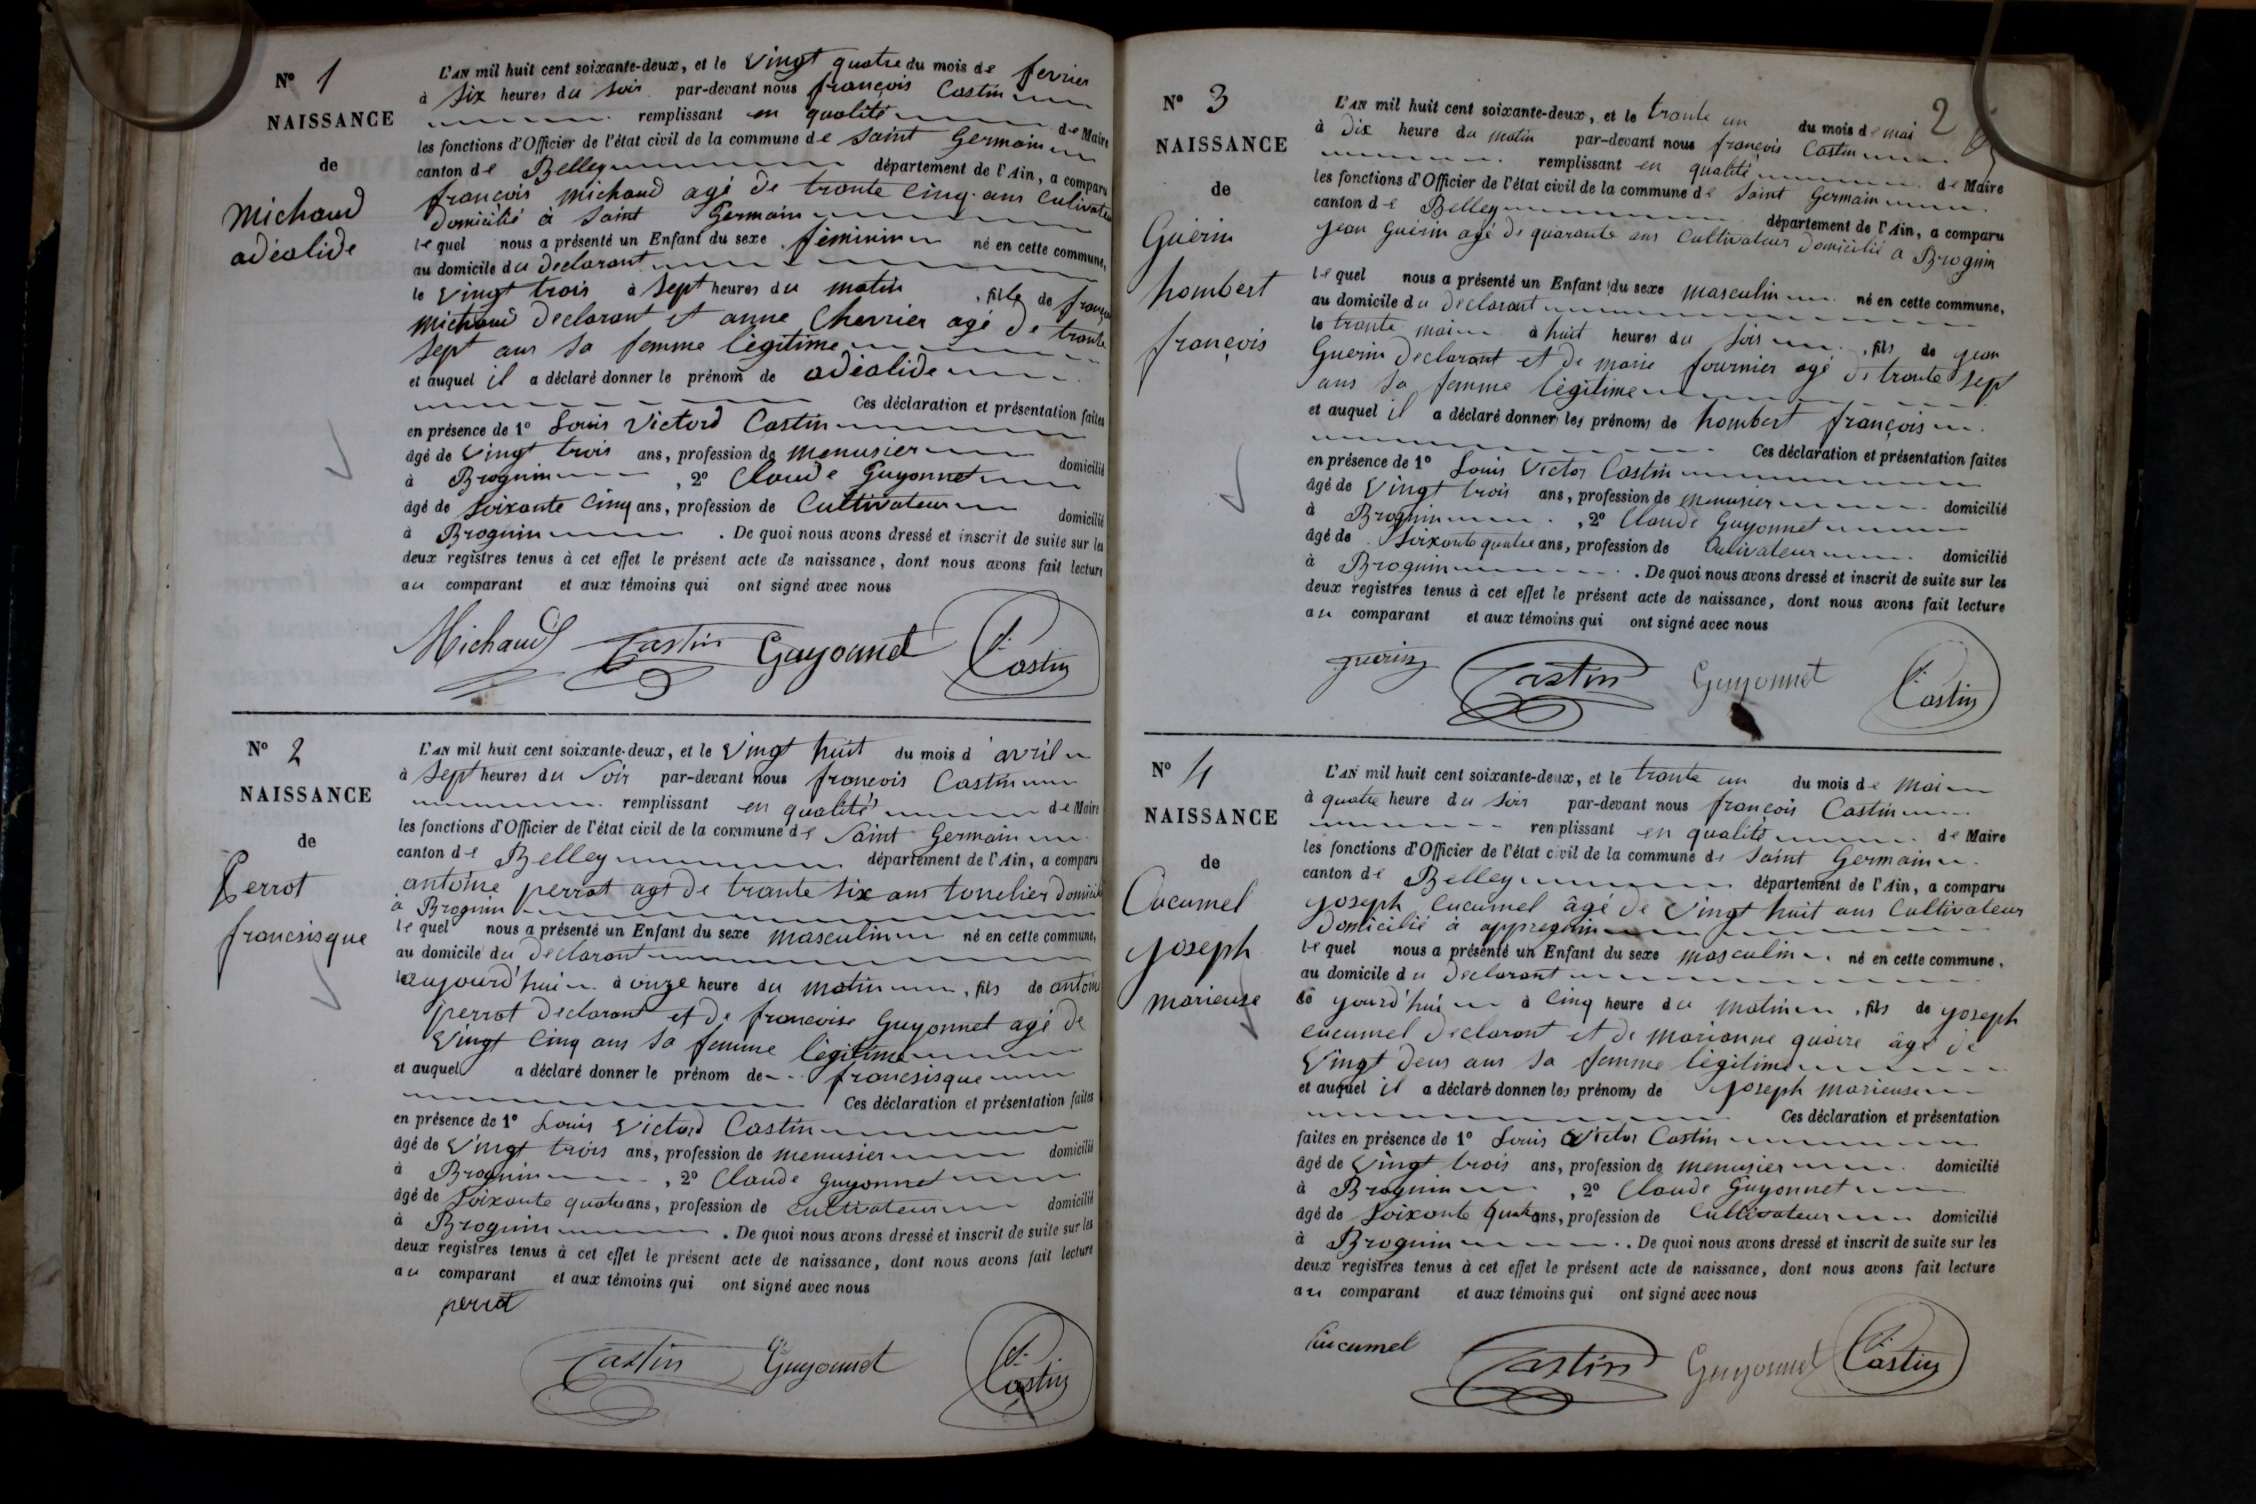 N° 1
NAISSANCE
de
Michaud
adéalide
L'AN mil huit cent soixante-deux, et le vingt quatre du mois de fevrier
à six heures du soir par-devant nous françois Castin
remplissant en qualité de Maire
les fonctions d'Officier de l'état civil de la commune de saint Germain
canton de Belley département de l'Ain, a comparu
françois michaud agé de trante cinq ans cultivateu
domicilié à saint Germain
lequel nous a présenté un Enfant du sexe féminin né en cette commune,
au domicile du declarant
le vingt trois à sept heures du matin, fille de franço
michaud declarant et anne Chevrier agé de trante
sept ans sa femme légitime
et auquel il a déclaré donner le prénom de adéalide
Ces déclaration et présentation faites
en présence de 1° Louis Victord Castin
âgé de vingt trois ans, profession de menusier domicilié
à Brognin, 2° Claude Guyonnet
âgé de soixante cinq ans, profession de Cultivateur domicilié
à Brognin. De quoi nous avons dressé et inscrit de suite sur les
deux registres tenus à cet effet le présent acte de naissance, dont nous avons fait lecture
au comparant et aux témoins qui ont signé avec nous
Michaud Castin Guyonnet Castin
N° 2
NAISSANCE
de
Perrot
francisique
L'AN mil huit cent soixante-deux, et le vingt huit du mois d'avril
à sept heures du soir par-devant nous francois Castin
remplissant en qualité de Maire
les fonctions d'Officier de l'état civil de la commune de Saint Germain
canton de Belley département de l'Ain, a comparu
antoine perrot agé de trante six ans tonelier domicilié
à Brognin
lequel nous a présenté un Enfant du sexe masculin né en cette commune,
au domicile du declarant
le aujourd'hui à onze heure du matin, fils de antoine
perrot declarant et de francoise Guyonnet agé de
vingt cinq ans sa femme légitime
et auquel a déclaré donner le prénom de francsisque
Ces déclaration et présentation faites
en présence de 1° Louis Victord Castin
âgé de vingt trois ans, profession de menusier domicilié
à Brognin, 2° Claude Guyonnet
âgé de soixante quatre ans, profession de cultivateur domicilié
à Brognin. De quoi nous avons dressé et inscrit de suite sur les
deux registres tenus à cet effet le présent acte de naissance, dont nous avons fait lecture
au comparant et aux témoins qui ont signé avec nous
perrot
Castin Guyonnet Castin
2
N° 3
NAISSANCE
de
Guérin
hombert
françois
L'AN mil huit cent soixante-deux, et le trante un du mois de mai
à dix heure du matin par-devant nous françois Castin
remplissant en qualité de Maire
les fonctions d'Officier de l'état civil de la commune de Saint Germain
canton de Belley département de l'Ain, a comparu
jean Guérin agé de quarante ans Cultivateur domicilié a Brognin
lequel nous a présenté un Enfant du sexe masculin né en cette commune,
au domicile du declarant
le trante mai à huit heures du soir, fils de jean
Guerin declarant et de marie fournier agé de trante sept
ans sa femme légitime
et auquel il a déclaré donner les prénoms de hombert françois
Ces déclaration et présentation faites
en présence de 1° Louis Victor Castin
âgé de vingt trois ans, profession de menusier domicilié
à Brognin, 2° Claude Guyonnet
âgé de soixante quatre ans, profession de Cultivateur domicilié
à Brognin. De quoi nous avons dressé et inscrit de suite sur les
deux registres tenus à cet effet le présent acte de naissance, dont nous avons fait lecture
au comparant et aux témoins qui ont signé avec nous
guerin Castin Guyonnet Castin
N° 4
NAISSANCE
de
Cucumel
joseph
marieuse
L'AN mil huit cent soixante-deux, et le trante un du mois de mai
à quatre heure du soir par-devant nous françois Castin
remplissant en qualité de Maire
les fonctions d'Officier de l'état civil de la commune de saint Germain
canton de Belley département de l'Ain, a comparu
joseph Cucumel âgé de vingt huit ans Cultivateur
domicilié à appregnin
lequel nous a présenté un Enfant du sexe masculin né en cette commune,
au domicile du declarant
yourd'hui à cinq heure du matin, fils de joseph
cucumel declarant et de marianne quaire âgé de
vingt deus ans sa femme légitime
et auquel il a déclaré donner les prénoms de joseph marieuse
Ces déclaration et présentation
faites en présence de 1° Louis Victor Castin
âgé de vingt trois ans, profession de menusier domicilié
à Brognin, 2° Claude Guyonnet
âgé de soixante quatre ans, profession de Cultivateur domicilié
à Brognin. De quoi nous avons dressé et inscrit de suite sur les
deux registres tenus à cet effet le présent acte de naissance, dont nous avons fait lecture
au comparant et aux témoins qui ont signé avec nous
Cucumel Castin Guyonnet Castin